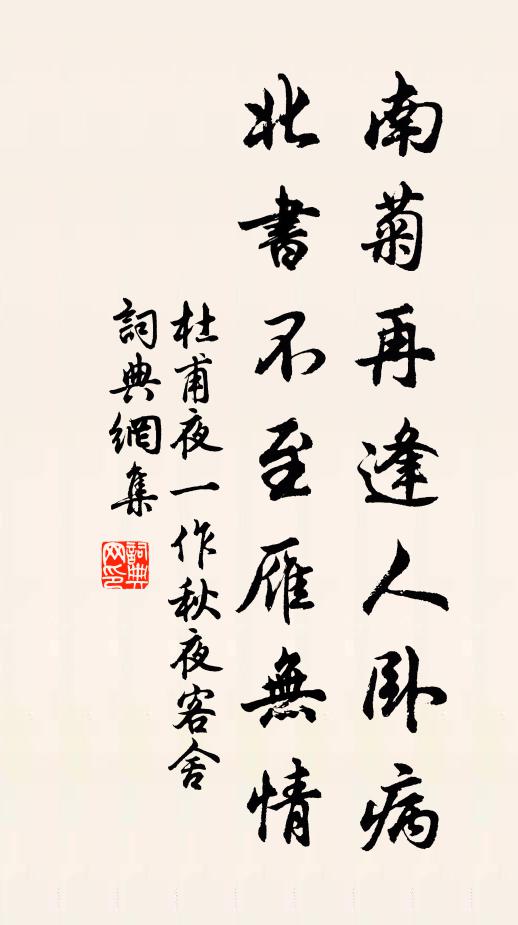 南菊再逢人卧病
北書不至雁無情
杜甫夜一作秋夜客舍
詞典網集
詞典网印